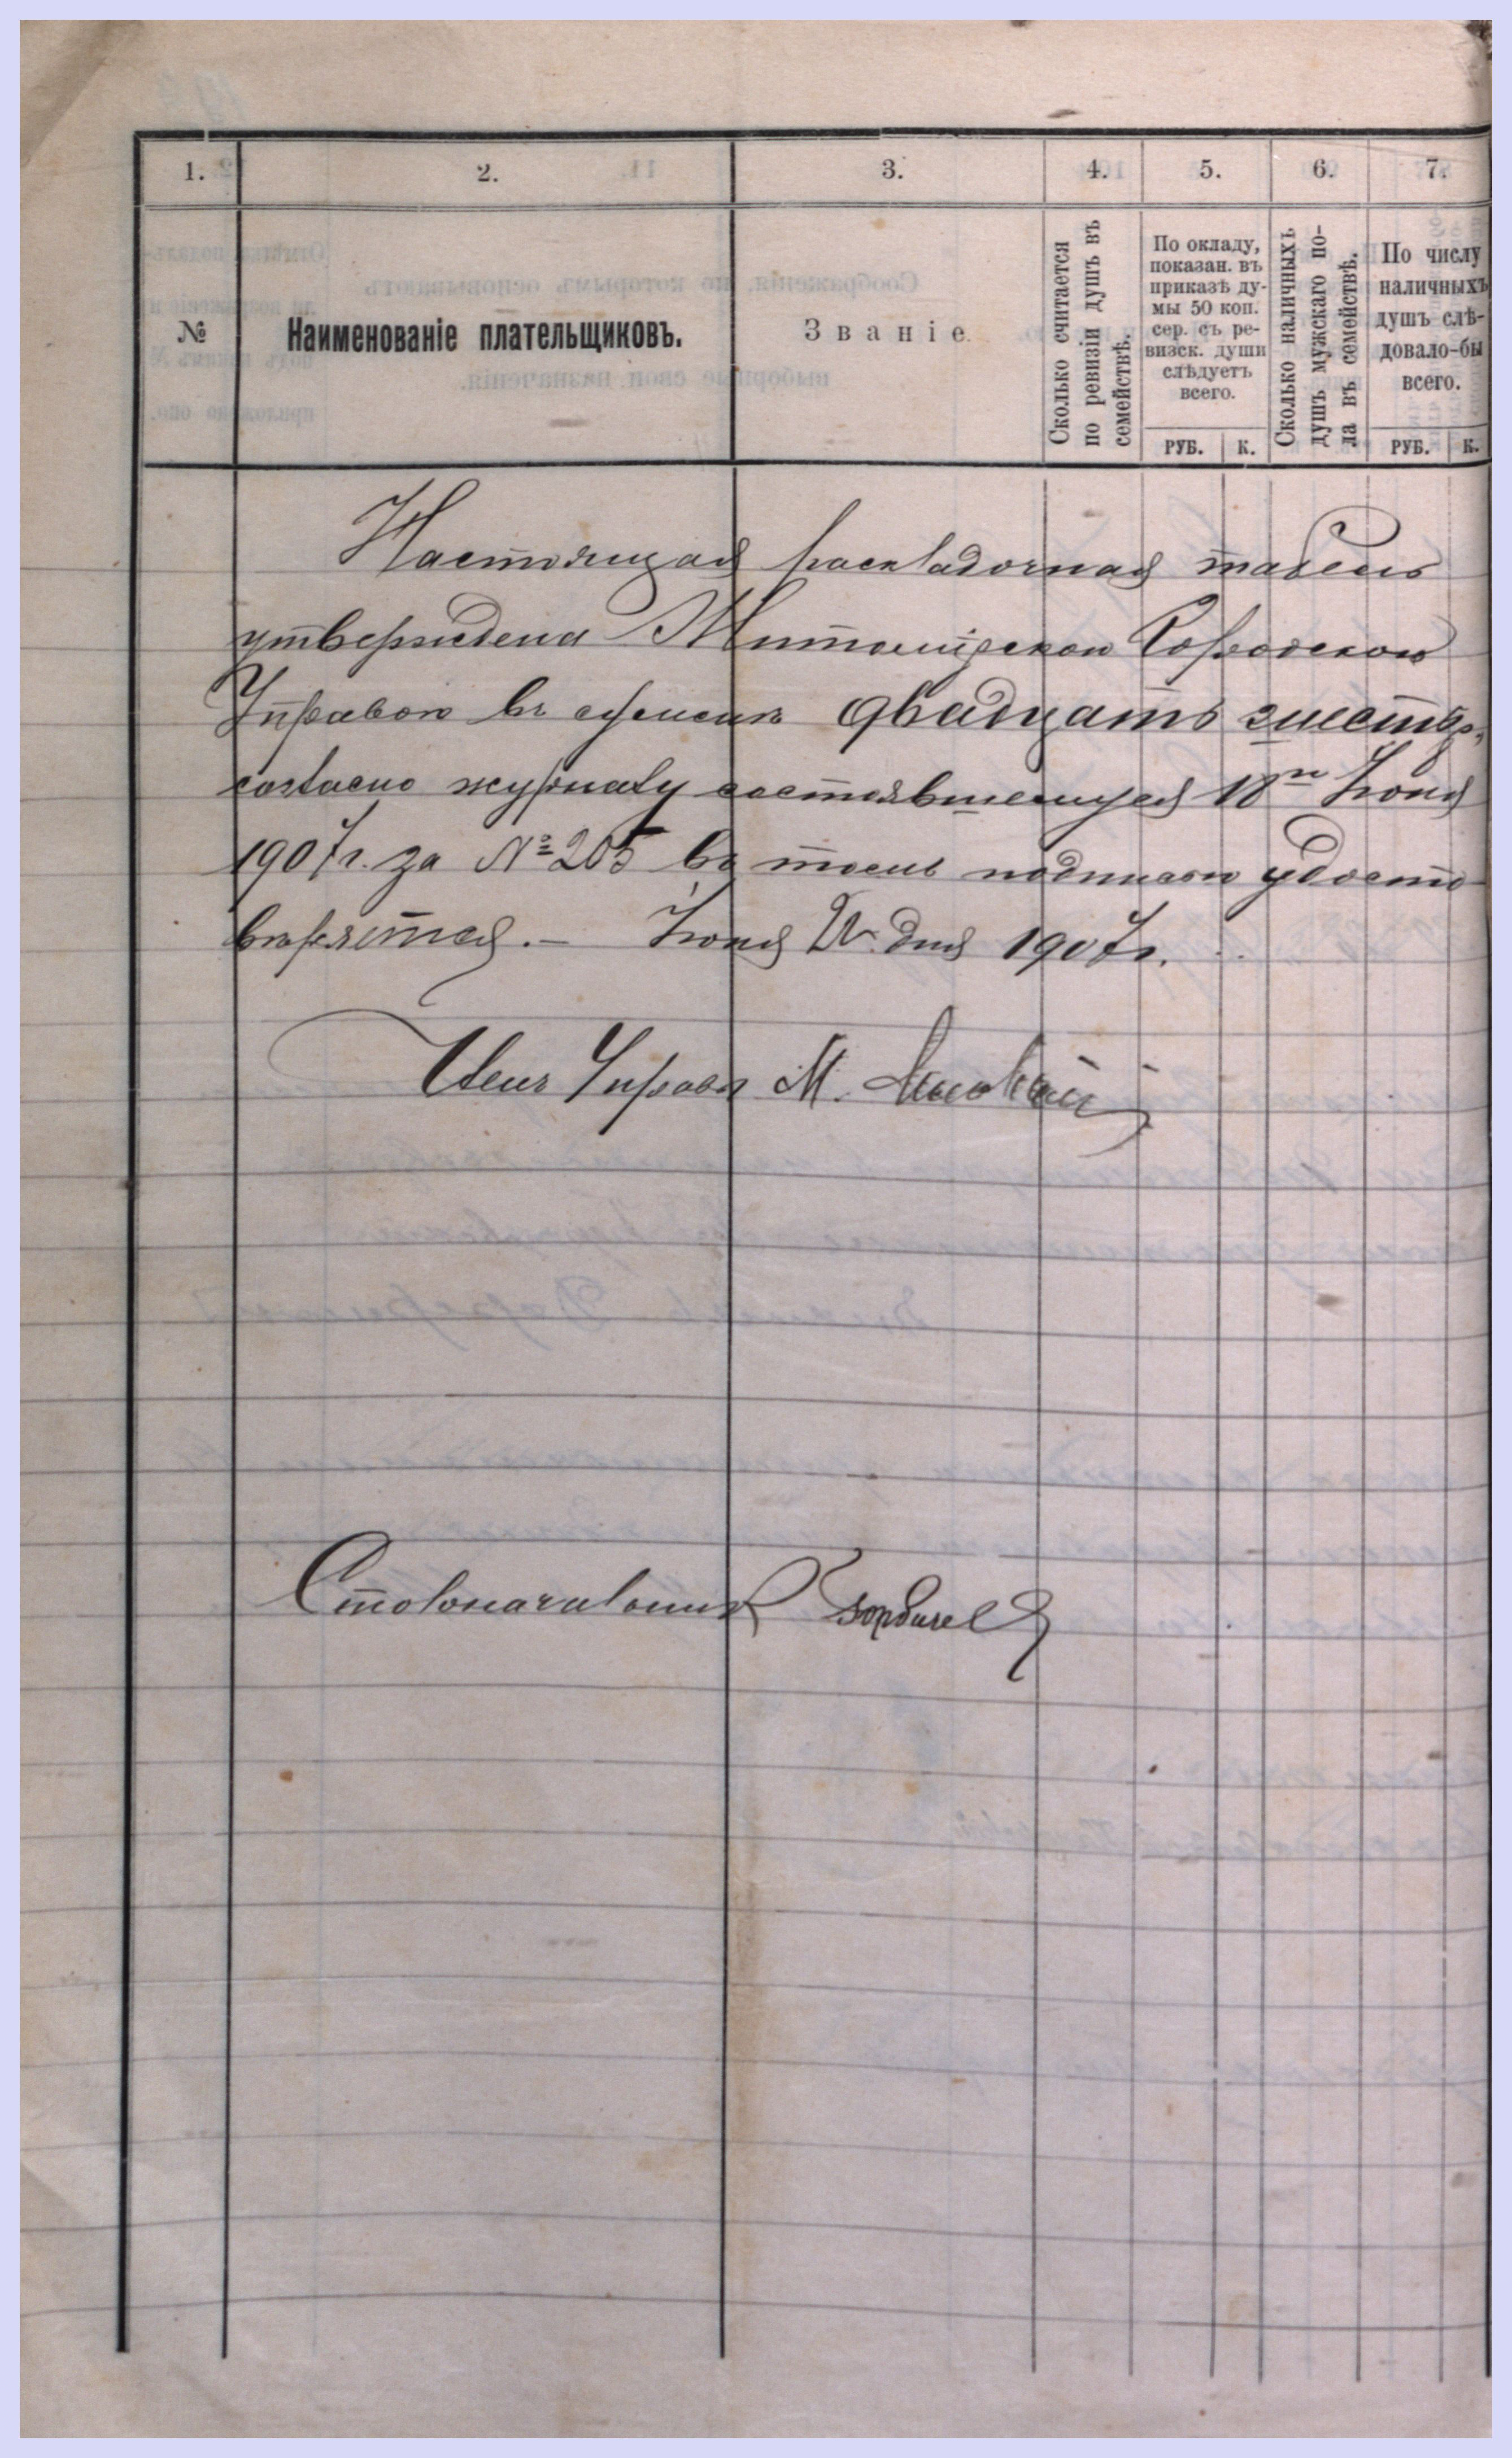 1. 2. 3. 4. 5. 6. 7.
№
Наименованіе плательщиковъ.
Званіе.
Сколько считается
по ревизіи душъ въ
семействѣ.
По окладу,
показан. въ
приказѣ ду-
мы 50 коп.
сер. съ ре-
визск. души
слѣдуетъ
всего.
РУБ. К.
Сколько наличныхъ
душъ мужскаго по-
ла въ семействѣ.
По числу
наличныхъ
душъ слѣ-
довало-бы
всего.
РУБ. К.
Настоящая раскладочная табель
утверждена Житомірскою Городскою
Управою въ двадцать шесть
согласно журналу состоявшемуся 18го Іюня
1907 г. за № 205 въ томъ подписью удосто-
вѣряется. — Іюня дня 1907 г.
Членъ Управы М.
Столоначальникъ